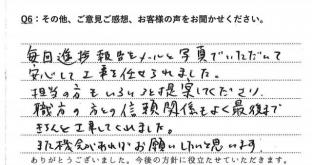 Q6:その他、ご意見ご感想、お客様の声をお聞かせください。
毎日進捗報告をメールと写真でいただいて
安心して工事を任せられました。
担当の方もいろいろと提案してくださり
職方の方との信頼関係もよく最後まで
きちんと工事してくれました。
また機会があればお願いしたいと思います
ありがとうございました。今後の方針に役立たせていただきます。